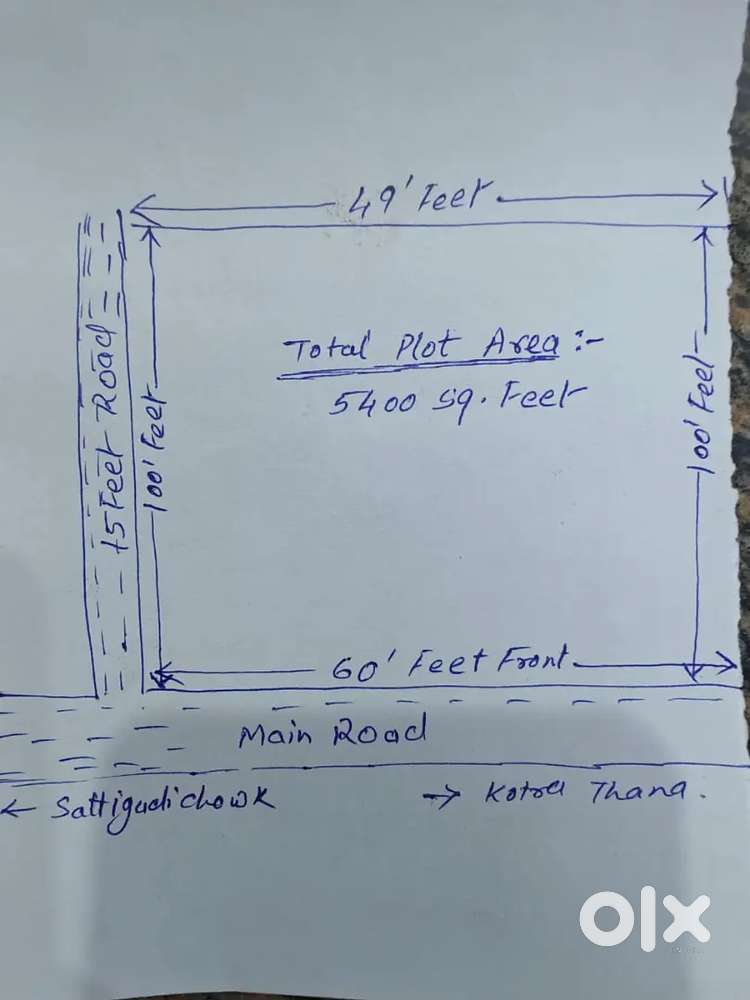 49' Feet
15 Feet Road
100' Feet
Total Plot Area :-
5400 sq. Feet
100' Feet
60' Feet Front
Main Road
← Sattigudi chowk
→ Kotra Thana.
olx